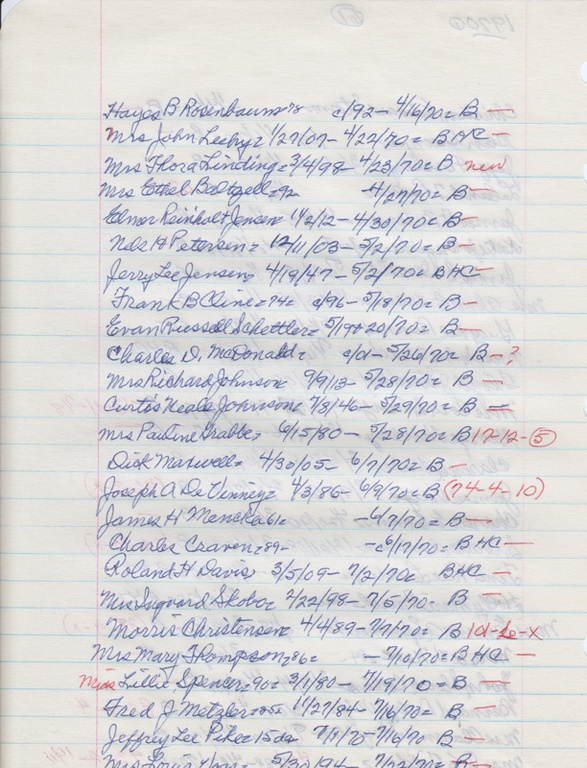 1970①
61
Hayes B Rosenbaum=78 c/92- 4/16/70= B —
Mrs John Leehy= 1/27/07- 4/22/70= B HC —
Mrs Flora Linding= 3/4/98- 4/23/70= B new
Mrs Ethel Baltzell=92 -4/27/70= B —
Elmer Reinholt Jensen 1/2/12- 4/30/70= B —
Nels H Petersen= 12/11/03- 5/2/70= B —
Jerry Lee Jensen= 4/19/47- 5/2/70= B HC —
Frank B Cline=74= c/96- 5/18/70= B —
Evan Russell Schettler= 5/19+20/70= B —
Charles D. McDonald= c/01- 5/26/70= B —?
Mrs Richard Johnson 9/9/13- 5/28/70= B —
Curtis Neale Johnson= 7/8/46- 5/29/70= B —
Mrs Pauline Grabbe= 6/15/80- 5/28/70= B 17-12-5
Dick Maxwell= 4/30/05- 6/7/70= B —
Joseph A DeVinney= 4/3/86- 6/9/70= B (74-4-10)
James H Mencke 61= -6/7/70= B —
Charles Craven=89- -c6/17/70= B HC —
Roland H Davis 3/5/09- 7/2/70= B HC —
Mrs Ingvard Skobo= 2/22/98- 7/5/70- B —
Morris Christensen= 4/4/89- 7/9/70= B 101-6-X
Mrs Mary Thompson=86= - 7/10/70= B HC —
Miss Lillie Spencer=90= 3/1/80- 7/19/70= B —
Fred J Metzler=85= 11/27/84- 7/16/70= B —
Jeffrey Lee Pike=15da 7/1/70-7/16/70 B —
Mrs Louis 5/30/94- 7/22/70= B —